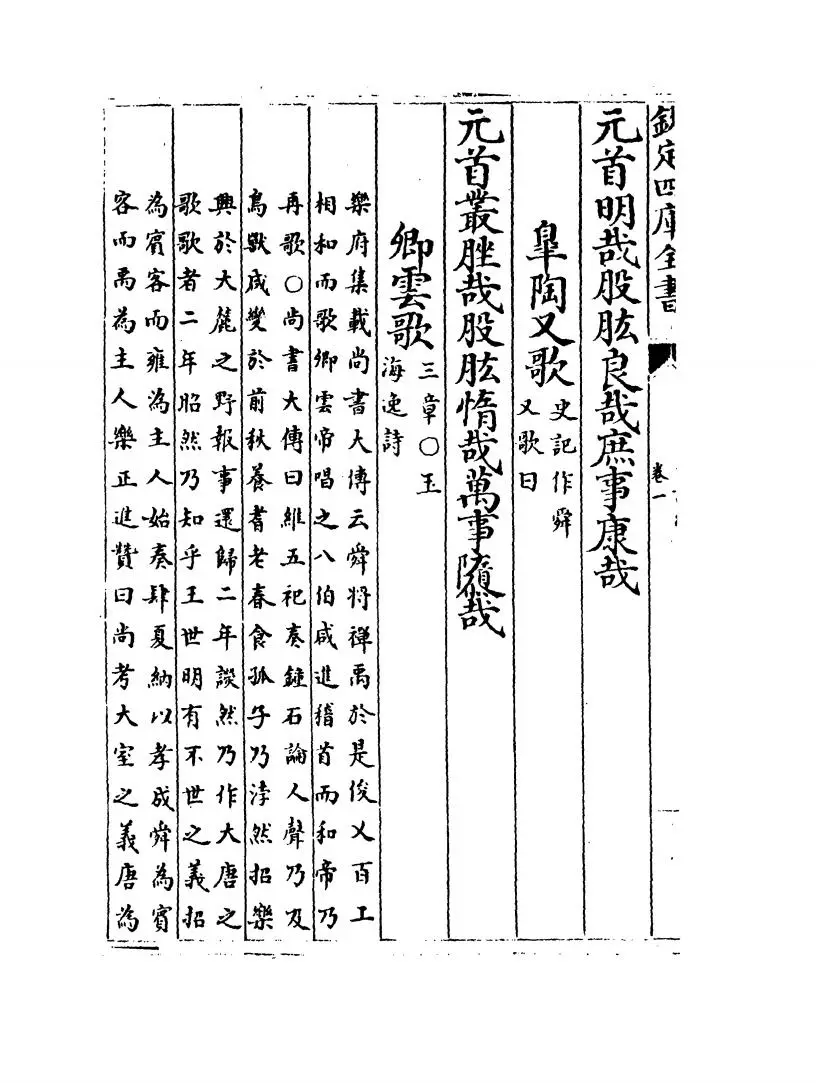 欽定四庫全書
卷一
元首明哉股肱良哉庶事康哉
皐陶又歌
史記作舜
又歌曰
元首叢脞哉股肱惰哉萬事隳哉
卿雲歌
三章○玉
海逸詩
樂府集載尚書大傳云舜將禪禹於是俊乂百工
相和而歌卿雲帝唱之八伯咸進稽首而和帝乃
再歌○尚書大傳曰維五祀奏鐘石論人聲乃及
鳥獸咸變於前秋養耆老春食孤子乃浡然招樂
興於大麓之野報事還歸二年談然乃作大唐之
歌歌者二年昭然乃知乎王世明有不世之義招
為賓客而雍為主人始奏肆夏納以孝成舜為賓
客而禹為主人樂正進贊曰尚考大室之義唐為